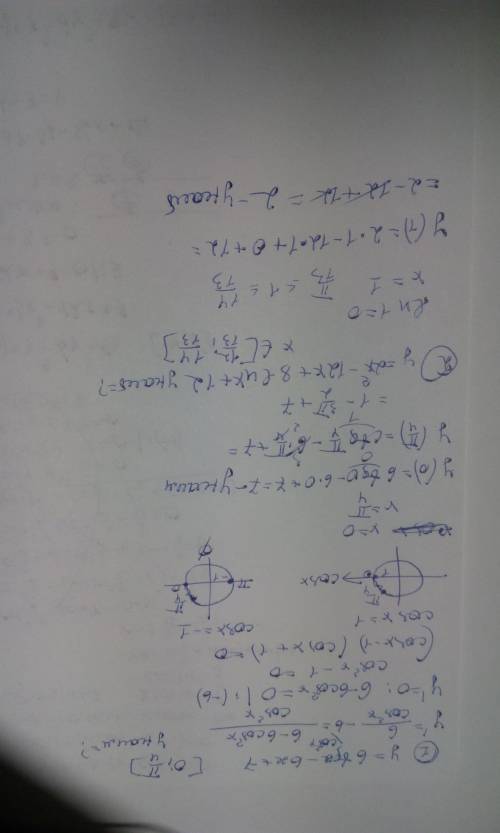 ① y = 6 tgx - 6x + 7 [0; π/4]
y наим = ?
y' = 6/cos²x - 6 = (6 - 6cos²x)/cos²x
y' = 0: 6 - 6cos²x = 0 | : (-6)
cos²x - 1 = 0
(cosx - 1) (cosx + 1) = 0
cosx = 1 cosx = -1
π/4 0 cosx π π/4 -1 0
∅
x = 0
x = π/4
y(0) = 6 tg0 - 6·0 + 7 = 7 - y наим
0
y(π/4) = 6 tg π/4 - 6·π/4 + 7 =
1
= 1 - 3π/2 + 7
② y = 2x² - 12x + 8 ln x + 12 y наиб = ?
x ∈ [12/13; 14/13]
ln 1 = 0
x = 1
y(1) = 2·1 - 12·1 + 0 + 12 =
= 2 - 12 + 12 = 2 - y наиб